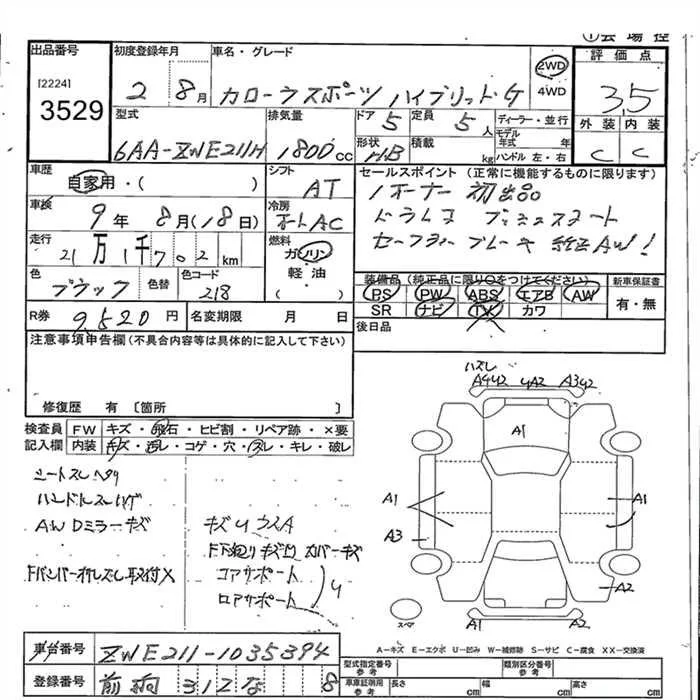 ①会場控
出品番号
[2224]
3529
初度登録年月
2 8月
車名・グレード
カローラスポーツ ハイブリッドG
2WD
4WD
評価点
3.5
外装 内装
C C
型式
6AA-ZWE211H
排気量
1800cc
ドア
5
定員
5人
ディーラー・並行
モデル年式 年
ハンドル 左・右
形状
HB
積載
kg
車歴
自家用・( )
シフト
AT
セールスポイント (正常に機能するものに限ります)
1オーナー 初出品
ドラレコ プッシュスタート
セーフティブレーキ 純正AW!
車検
9年 8月(18日)
冷房
オートAC
走行
21万1千702km
燃料
ガソリン
軽油
( )
色
ブラック
色替
色コード
218
装備品 (純正品に限り○をつけてください)
PS PW ABS エアB AW
SR ナビ TV カワ
新車保証書
有・無
R券 9520円
名変期限 月 日
後日品
注意事項申告欄 (不具合内容等は具体的に記入して下さい)
修復歴 有 [箇所 ]
検査員記入欄
FW キズ・飛石・ヒビ割・リペア跡・×要
内装 キズ・汚レ・コゲ・穴・スレ・キレ・破レ
シートスレヘタリ
ハンドルスレハゲ
AW Dミラーキズ
キズUウスA
F下廻りキズ凹 カバーキズ
Fバンパー押しズレ取付×
コアサポート
ロアサポート
U
ハズレ
A4U2 UA2 A3U2
A1
A1 A1
A3
A2
スペア
A-キズ E-エクボ U-凹み W-補修跡 S-サビ C-腐食 XX-交換済
車台番号 ZWE211-1035394
登録番号 312 な 8
型式指定番号 参考
類別区分番号 参考
車庫証明用 参考 長さ cm 幅 cm 高さ cm